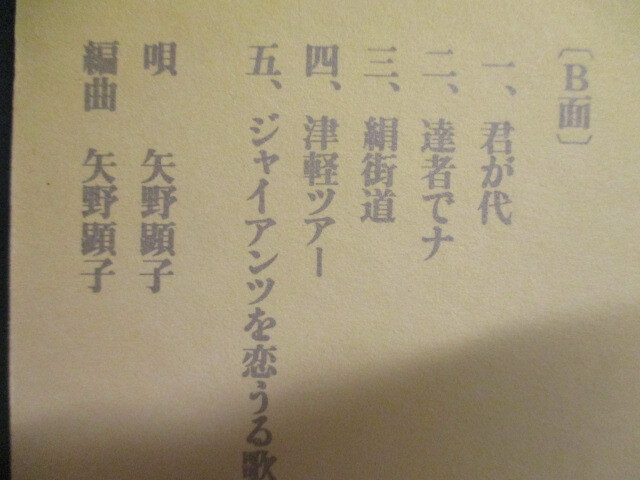 〔B面〕
一、君が代
二、達者でナ
三、絹街道
四、津軽ツアー
五、ジャイアンツを恋うる歌
唄 矢野顕子
編曲 矢野顕子